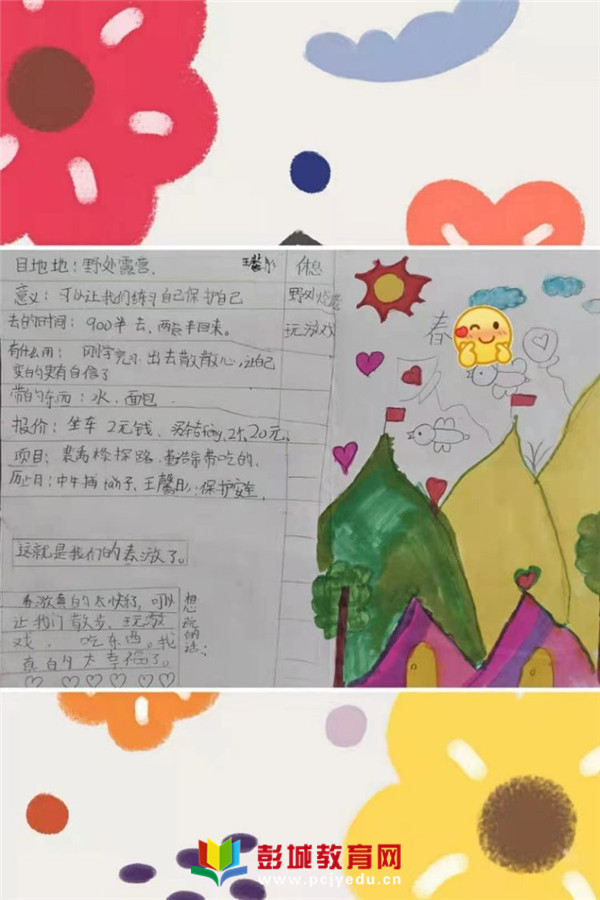 目地地：野处露营。
意义：可以让我们练习自己保护自己
去的时间：900半去，两点半回来。
有什么用：刚学完习出去散散心，让自己
变的更有自信了
带的东西：水、面包
报价：坐车2元钱、
20元。
项目：
探路，
带吃的，
中午
王馨
保护安全
这就是我们的春游了。
春游真的太快乐了，可以
让我们散步、玩游
戏、吃东西。我
真的太幸福了。
想玩的话：
休息
野外
玩游戏
春
彭城教育网
www.pcjyedu.cn